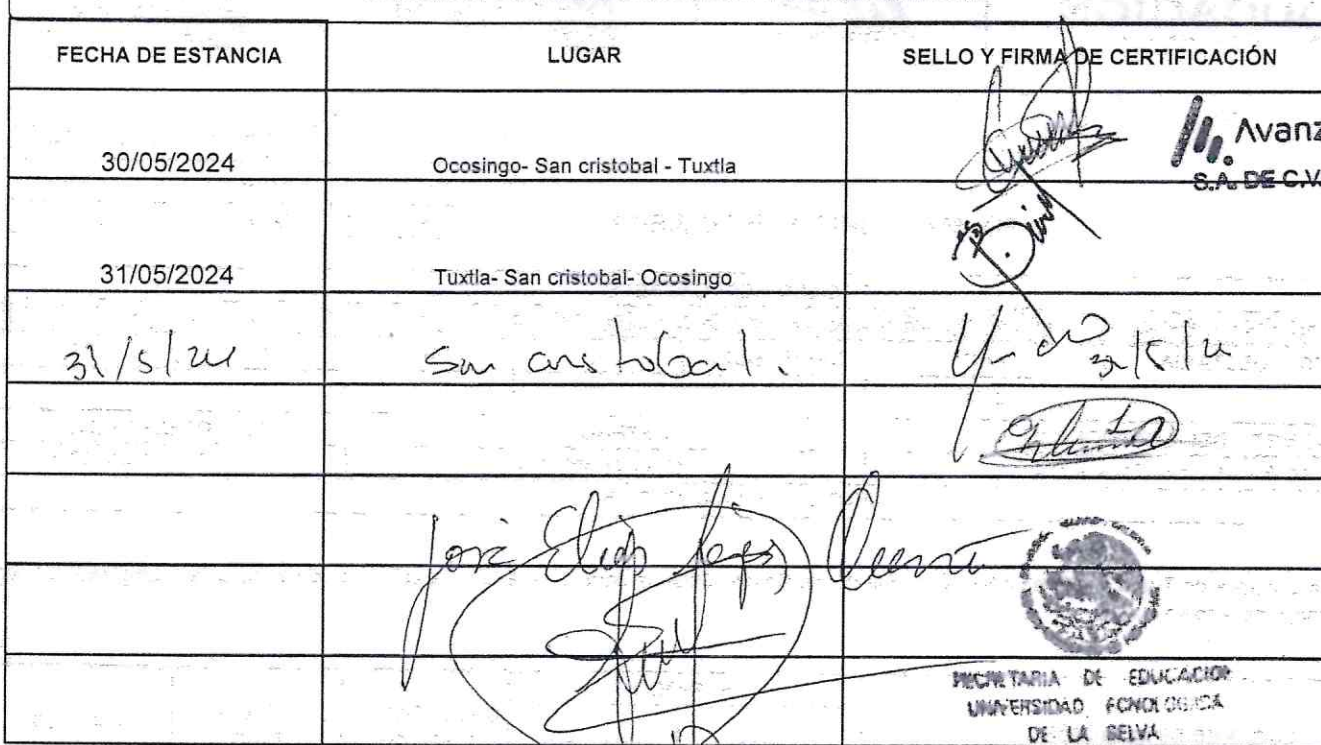 FECHA DE ESTANCIA LUGAR SELLO Y FIRMA DE CERTIFICACIÓN
Avanz
S.A. DE C.V.
30/05/2024 Ocosingo- San cristobal - Tuxtla
31/05/2024 Tuxtla- San cristobal- Ocosingo
31/5/24 San cristobal. 31/5/24
José
SECRETARIA DE EDUCACION
UNIVERSIDAD TECNOLOGICA
DE LA SELVA